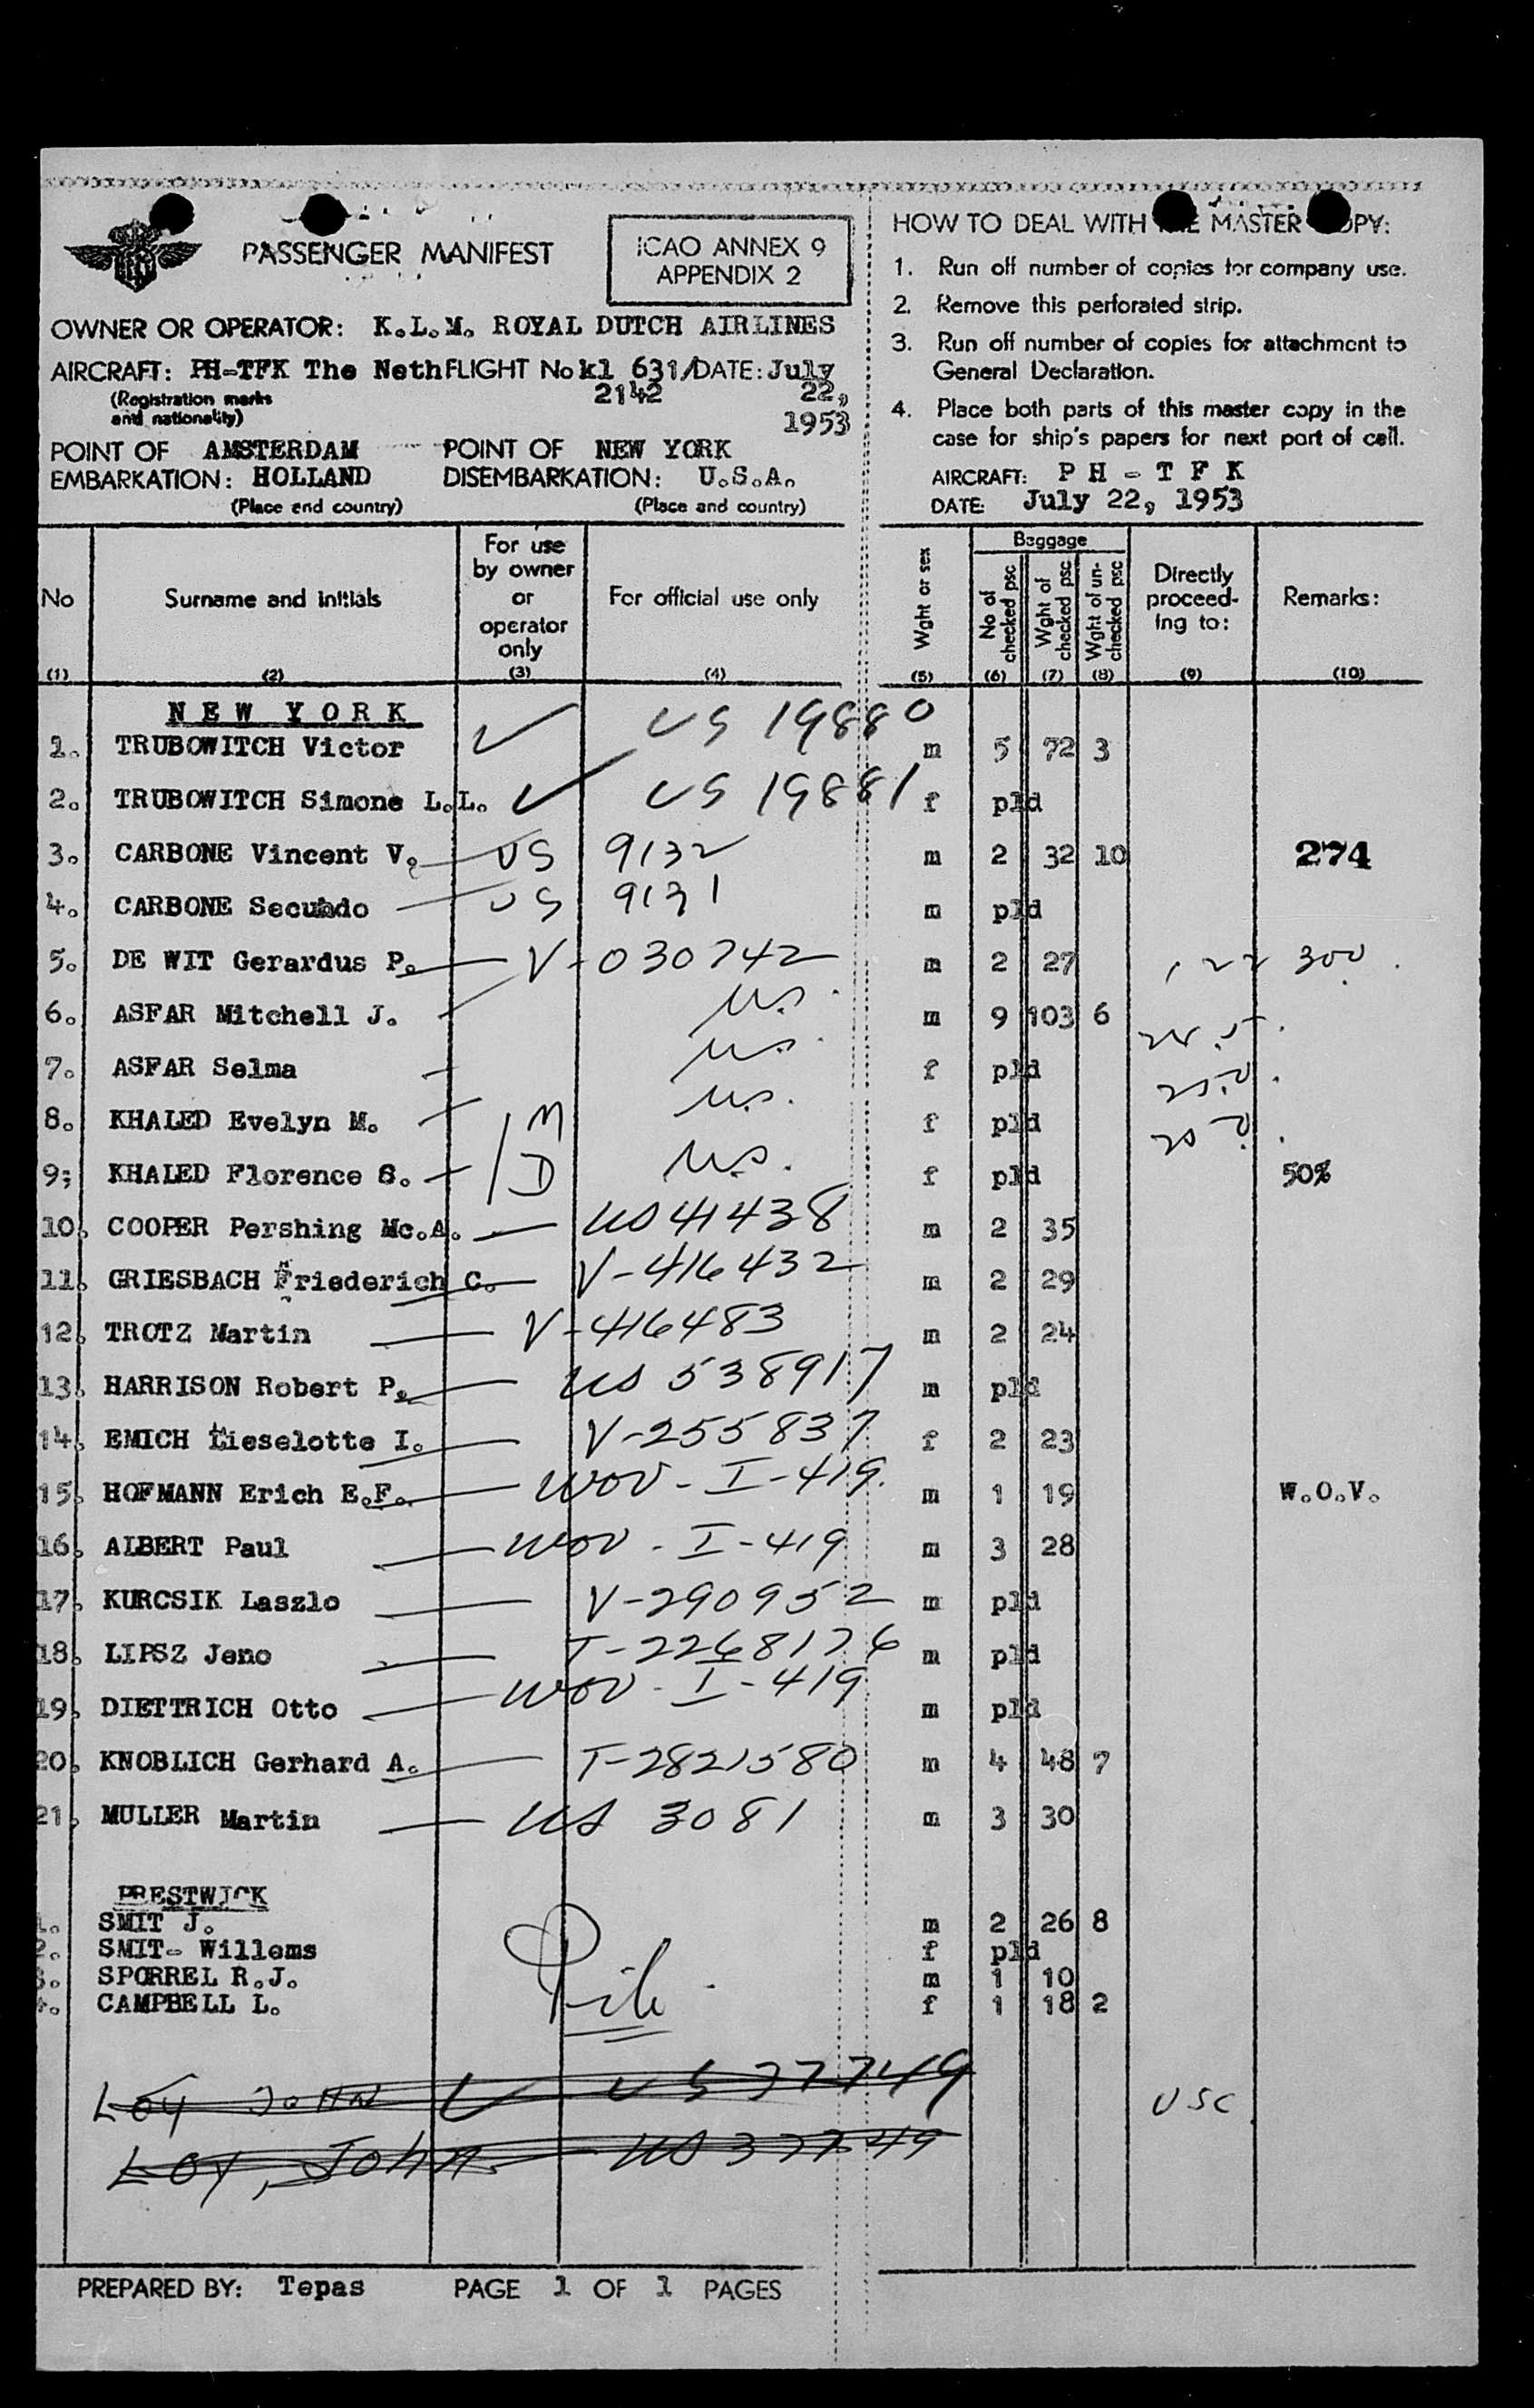 PASSENGER MANIFEST
ICAO ANNEX 9
APPENDIX 2
OWNER OR OPERATOR: K.L.M. ROYAL DUTCH AIRLINES
AIRCRAFT: PH-TFK The Neth FLIGHT No kl 631/ DATE: July
(Registration marks 2142 22,
and nationality) 1953
POINT OF AMSTERDAM POINT OF NEW YORK
EMBARKATION: HOLLAND DISEMBARKATION: U.S.A.
(Place and country) (Place and country)
HOW TO DEAL WITH MASTER
1. Run off number of copies for company use.
2. Remove this perforated strip.
3. Run off number of copies for attachment to
General Declaration.
4. Place both parts of this master copy in the
case for ship's papers for next port of call.
AIRCRAFT: PH - TFK
DATE: July 22, 1953
No Surname and initials For use by owner or operator only For official use only Wght or sex Baggage No of checked psc Wght of checked psc Wght of un-checked psc Directly proceed-ing to: Remarks:
(1) (2) (3) (4) (5) (6) (7) (8) (9) (10)
NEW YORK
1. TRUBOWITCH Victor US 19880 m 5 72 3
2. TRUBOWITCH Simone L.L. US 19881 f pld
3. CARBONE Vincent V. US 9132 m 2 32 10 274
4. CARBONE Secundo US 9131 m pld
5. DE WIT Gerardus P. V-030742 m 2 27 300
6. ASFAR Mitchell J. U.S. m 9 103 6
7. ASFAR Selma U.S. f pld
8. KHALED Evelyn M. M U.S. f pld
9; KHALED Florence S. D U.S. f pld 50%
10. COOPER Pershing Mc.A. US 41438 m 2 35
11. GRIESBACH Friederich C. V-416432 m 2 29
12. TROTZ Martin V-416483 m 2 24
13. HARRISON Robert P. US 538917 m pld
14. EMICH Lieselotte I. V-255837 f 2 23
15. HOFMANN Erich E.F. WOV-I-419. m 1 19 W.O.V.
16. ALBERT Paul WOV-I-419 m 3 28
17. KURCSIK Laszlo V-290952 m pld
18. LIPSZ Jeno T-2268176 m pld
19. DIETTRICH Otto WOV-I-419 m pld
20. KNOBLICH Gerhard A. T-2821580 m 4 48 7
21. MULLER Martin US 3081 m 3 30
PRESTWICK
1. SMIT J. m 2 26 8
2. SMIT- Willems f pld
3. SPORREL R.J. m 1 10
4. CAMPBELL L. f 1 18 2
LOY JOHN US 37749 USC
LOY, John US 37749
PREPARED BY: Tepas PAGE 1 OF 1 PAGES